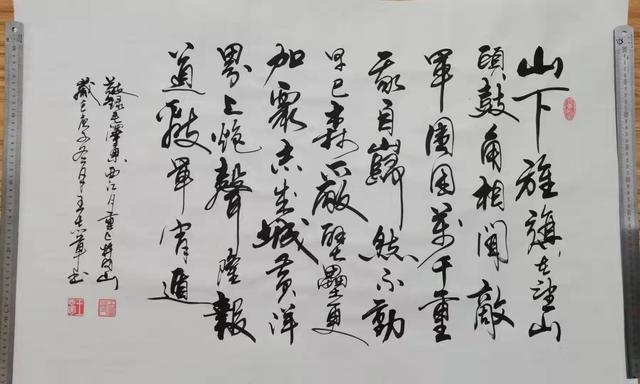 山下旌旗在望山
頭鼓角相聞敵
軍圍困萬千重
我自巋然不動
早已森嚴壁壘更
加衆志成城黄洋
界上炮聲隆報
道敵軍宵遁
敬録毛澤東西江月重上井岡山
歲在庚子冬月王書